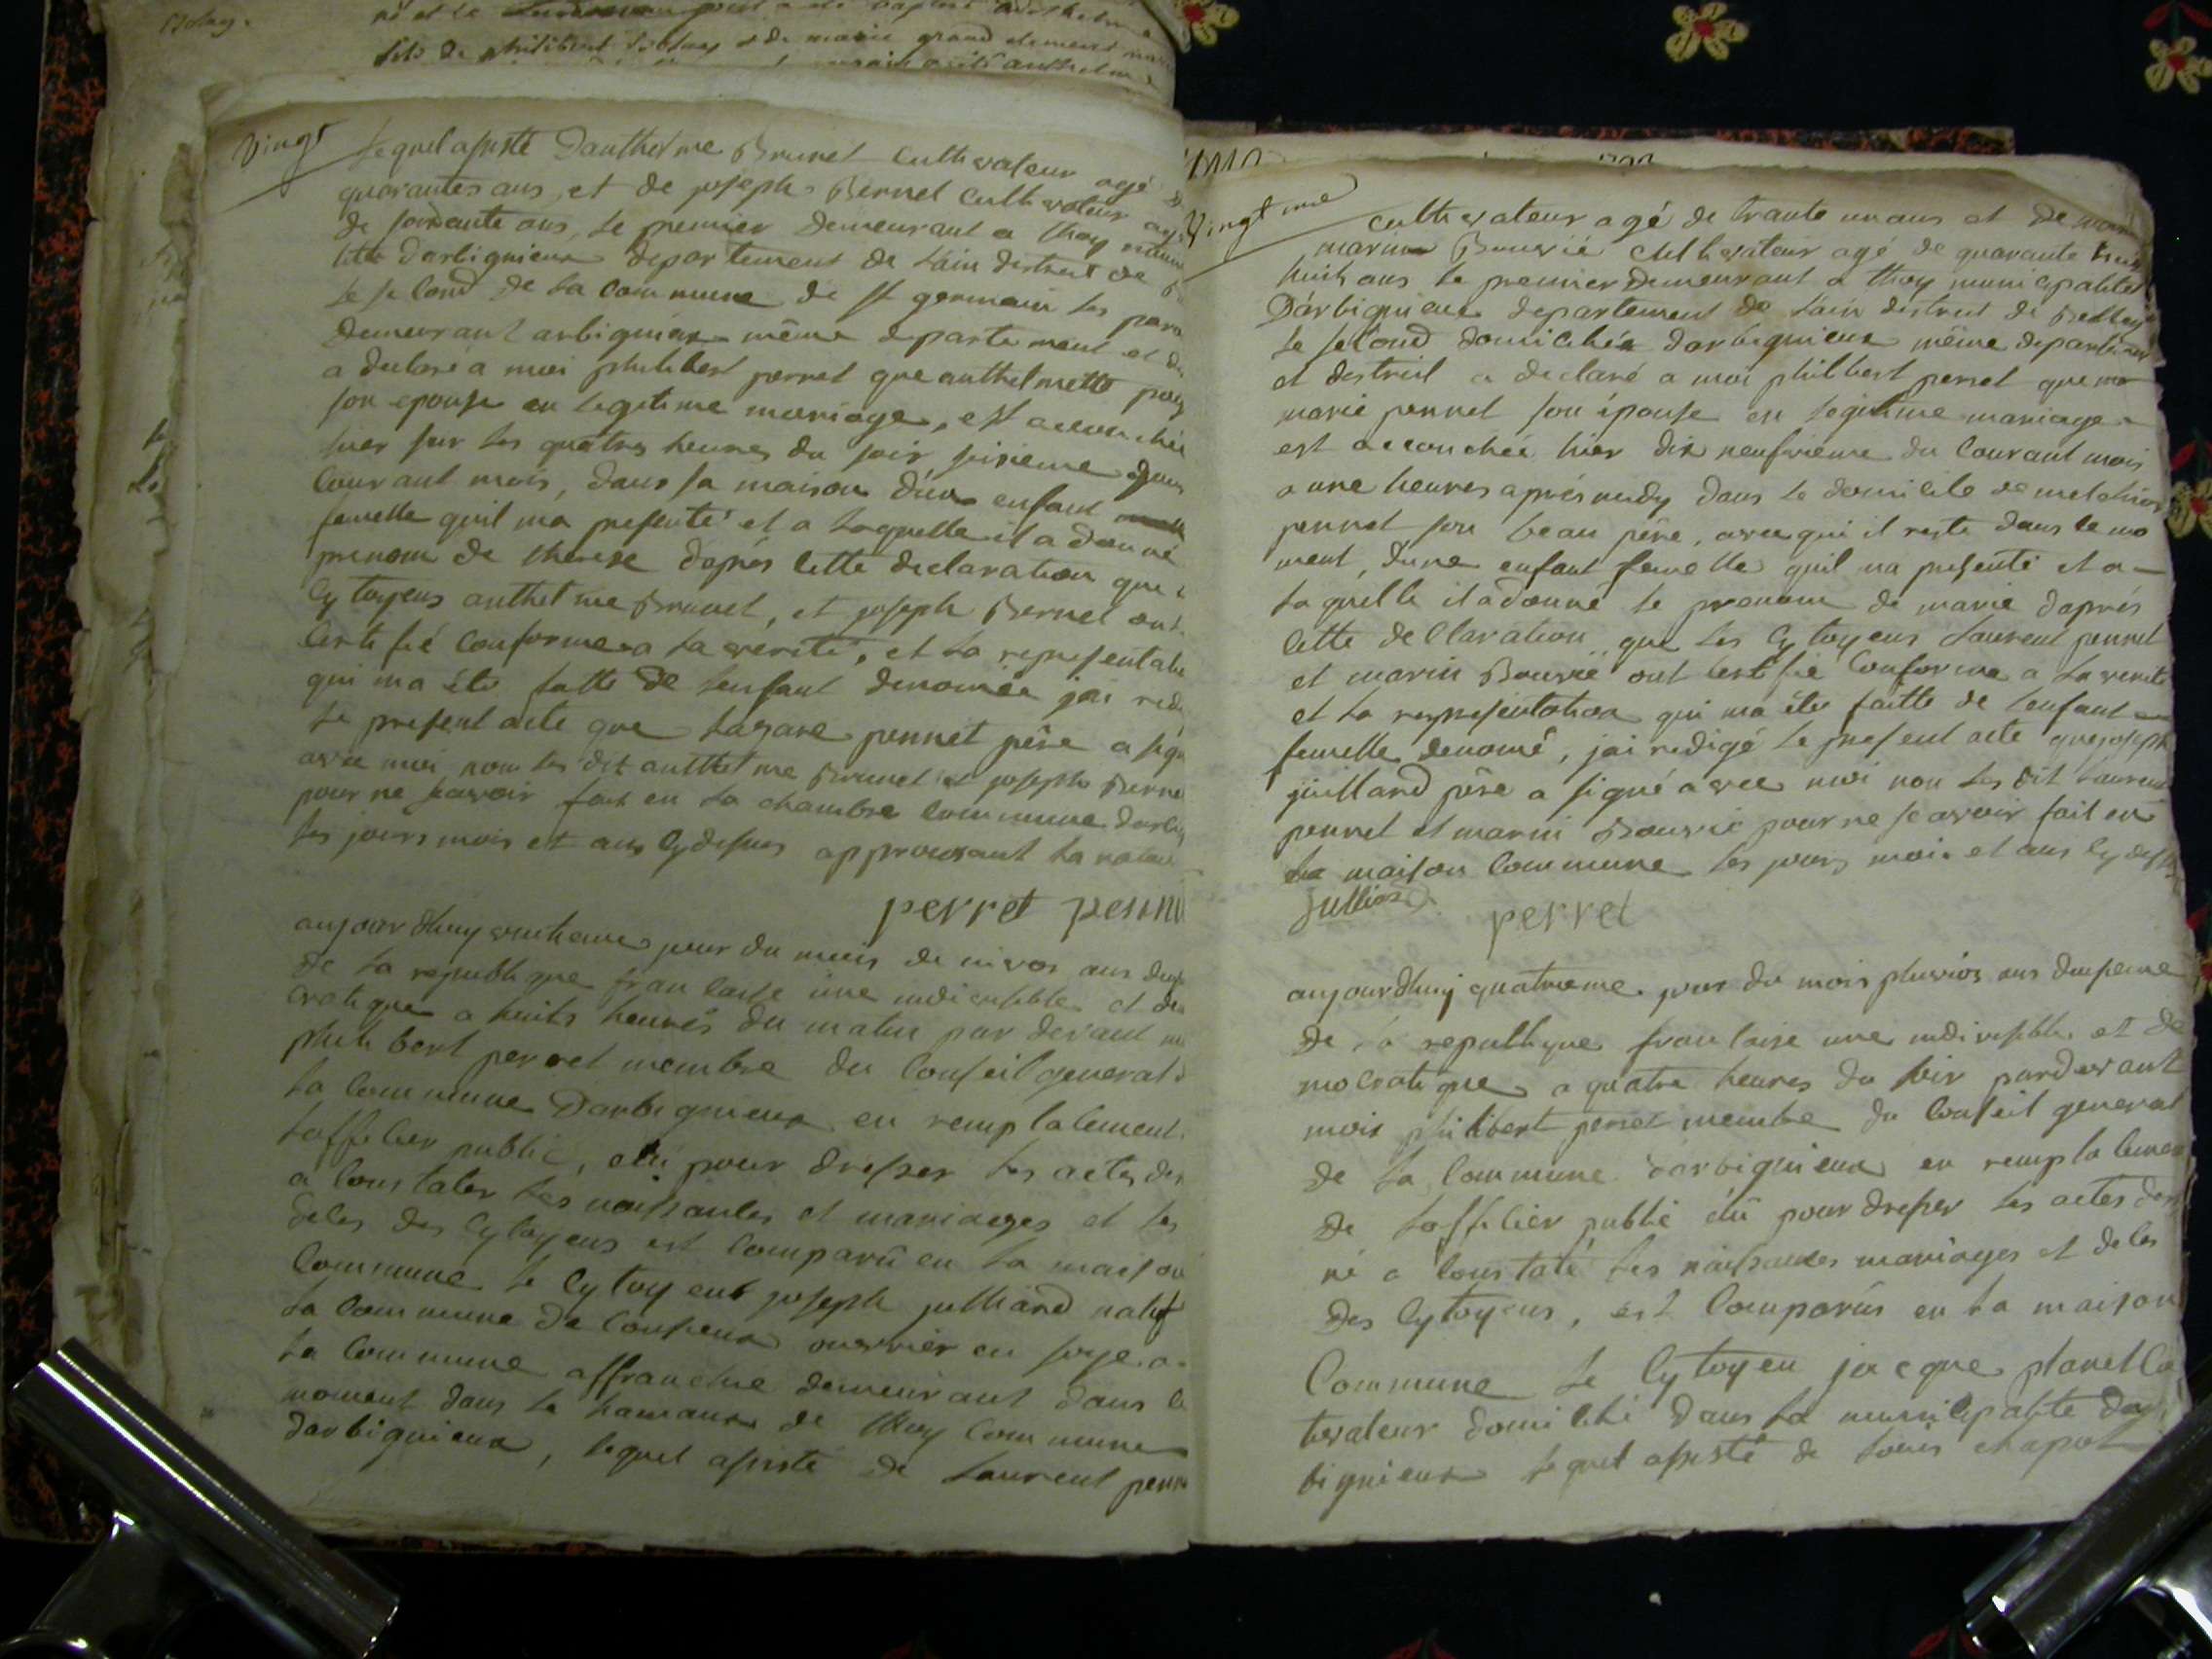 fils de philibert et de marie grand
Vingt
Lequel assisté Danthelme Brunet Cultivateur agé
quarantes ans, et de joseph Bernel Cultivateur
de soixante ans, le premier demeurant a thoy
Darbignieux departement de lain district de
le second de la commune de st germain les
Demeurant arbignieux même departement et
a declaré a moi philibert perret que anthelmette
son epouse en legitime mariage, est accouchée
hier sur les quatres heures du soir
courant mois, dans sa maison d'un enfant
femelle quil ma presenté et a laquelle il a donné
prenom de therese dapres cette declaration que
cytoyens anthelme Brunet, et joseph Bernel ont
certifié conforme a la verité, et la representation
qui ma été faitte de lenfant denomée jai
le present acte que lazare pennet père a
avec moi non les dit anthelme Brunet et joseph
pour ne scavoir fait en la chambre commune
les jours mois et ans cydessus approuvant la
perret
aujourdhuy jour du mois de nivos ans
de la republique francaise une indivisible et
cratique a huits heures du matin par devant
philibert perret membre du conseil general
la commune Darbignieux en remplacement
laffecier public, elu pour dresser les actes
a constater les naissances et mariages et les
deces des cytoyens est comparü en la maison
commune le cytoyens joseph julliard natif
la commune de ouvrier en soye a
la commune affranchie demeurant dans le
moment dans le hamaux de thoy commune
darbignieux, lequel assisté de Laurent
Vingt me
cultivateur agé de trante un ans et de
marin Bouvié cultivateur agé de quarante
huit ans le premier demeurant a thoy municipalité
Darbignieux departement de lain district de Belley
le second domiciliée darbignieux même departement
et district a declaré a moi philibert perret que
marie pennet son épouse en legitime mariage
est accouchée hier dix neufvieme du courant mois
a une heures aprés midy dans le domicile de melchior
pennet son beau père, avec qui il reste dans le mo
ment, d'une enfant femelle quil ma presenté et a
laquelle il a donné le prenom de marie daprés
cette decclaration que les cytoyens Laurent pennet
et marin Bouvié ont certifié conforme a la verite
et la representation qui ma été faitte de lenfant
femelle denomé, jai redigé le present acte que joseph
juilliard père a signé avec moi non les dit Laurent
pennet et marin Bouvié pour ne scavoir fait en
la maison commune les jours mois et ans
julliard perret
aujourdhuy quatrieme jour du mois pluvios ans deusieme
de la republique francaise une indivisible et de
mocratique a quatre heures du soir pardevant
moix philibert perret membre du conseil general
de la commune darbignieux en remplacement
de laffecier public élü pour dresser les actes
né a constaté les naissances mariages et deces
des cytoyens, est comparüs en la maison
commune le cytoyen jacque
tivateur domicilié dans la municipalité dar
bignieux lequel assisté de Louis chapot